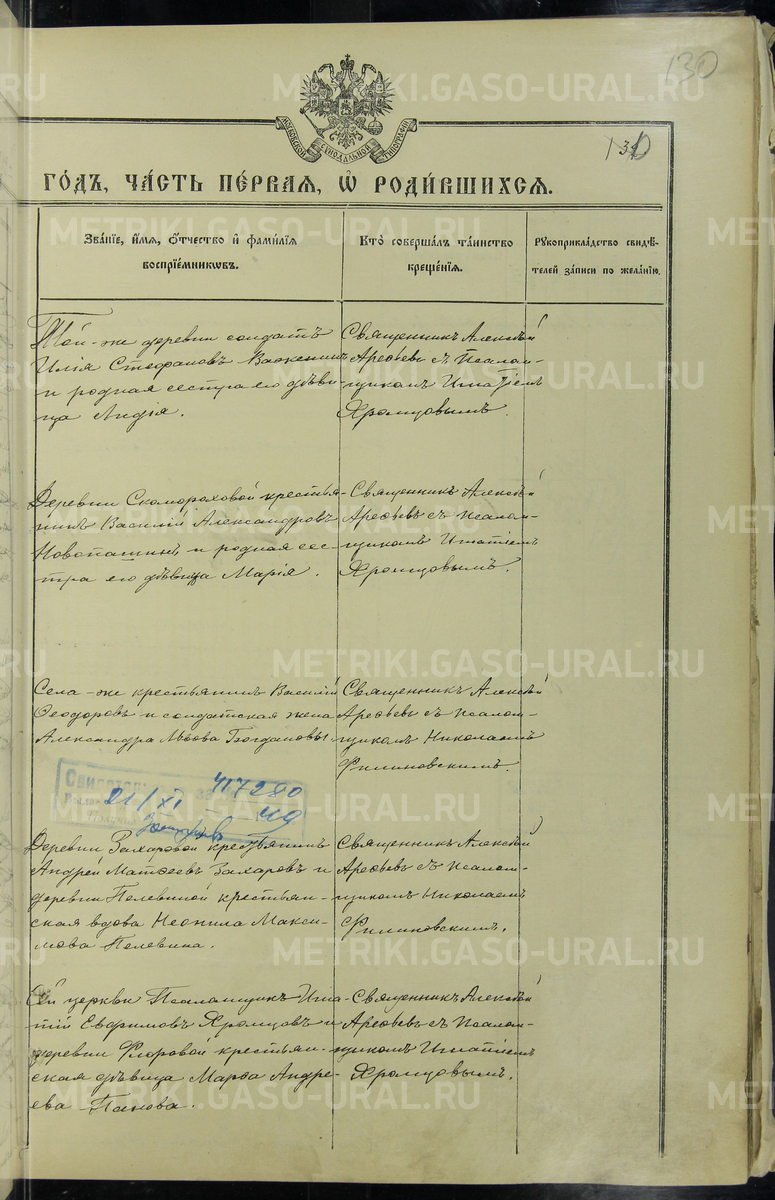 130
МОСКОВСКОЙ СУНОДАЛЬНОЙ ТИПОГРАФІИ
ГО́ДЪ, ЧА́СТЬ ПЕ́РВАЯ, Ѡ҆ РОДИ́ВШИХСЯ.
Зва́нїе, и҆́мя, ѻ҆́тчество и҆ фами́лїя
воспрїе́мникѡвъ.
Кто̀ соверша́лъ та́инство
креще́нїя.
Рꙋкоприкла́дство свидѣ́-
телей за́писи по жела́нїю.
Той-же деревни солдатъ
Илія Стефановъ Важенинъ
и родная сестра его дѣви-
ца Лидія.
Священникъ Алексѣй
Арефьевъ съ Псалом-
щикомъ Игнатіемъ
Хромцовымъ.
Деревни Скомороховой крестья-
нинъ Василій Александровъ
Новопашинъ и родная сес-
тра его дѣвица Марія.
Священникъ Алексѣй
Арефьевъ съ Псалом-
щикомъ Игнатіемъ
Хромцовымъ.
Села-же крестьянинъ Василій
Ѳеодоровъ и солдатская жена
Александра Львова Богдановы.
Священникъ Алексѣй
Арефьевъ съ Псалом-
щикомъ Николаемъ
Филиновскимъ.
21/XI
417280
49
Деревни Захаровой крестьянинъ
Андрей Матѳеевъ Захаровъ и
деревни Пелевиной крестьян-
ская вдова Неонила Макси-
мова Пелевина.
Священникъ Алексѣй
Арефьевъ съ Псалом-
щикомъ Николаемъ
Филиновскимъ.
Сей церкви Псаломщикъ Игна-
тій Евфимовъ Хромцовъ и
деревни Флоровой крестьян-
ская дѣвица Марѳа Андре-
ева Панова.
Священникъ Алексѣй
Арефьевъ съ Псалом-
щикомъ Игнатіемъ
Хромцовымъ.
METRIKI.GASO-URAL.RU